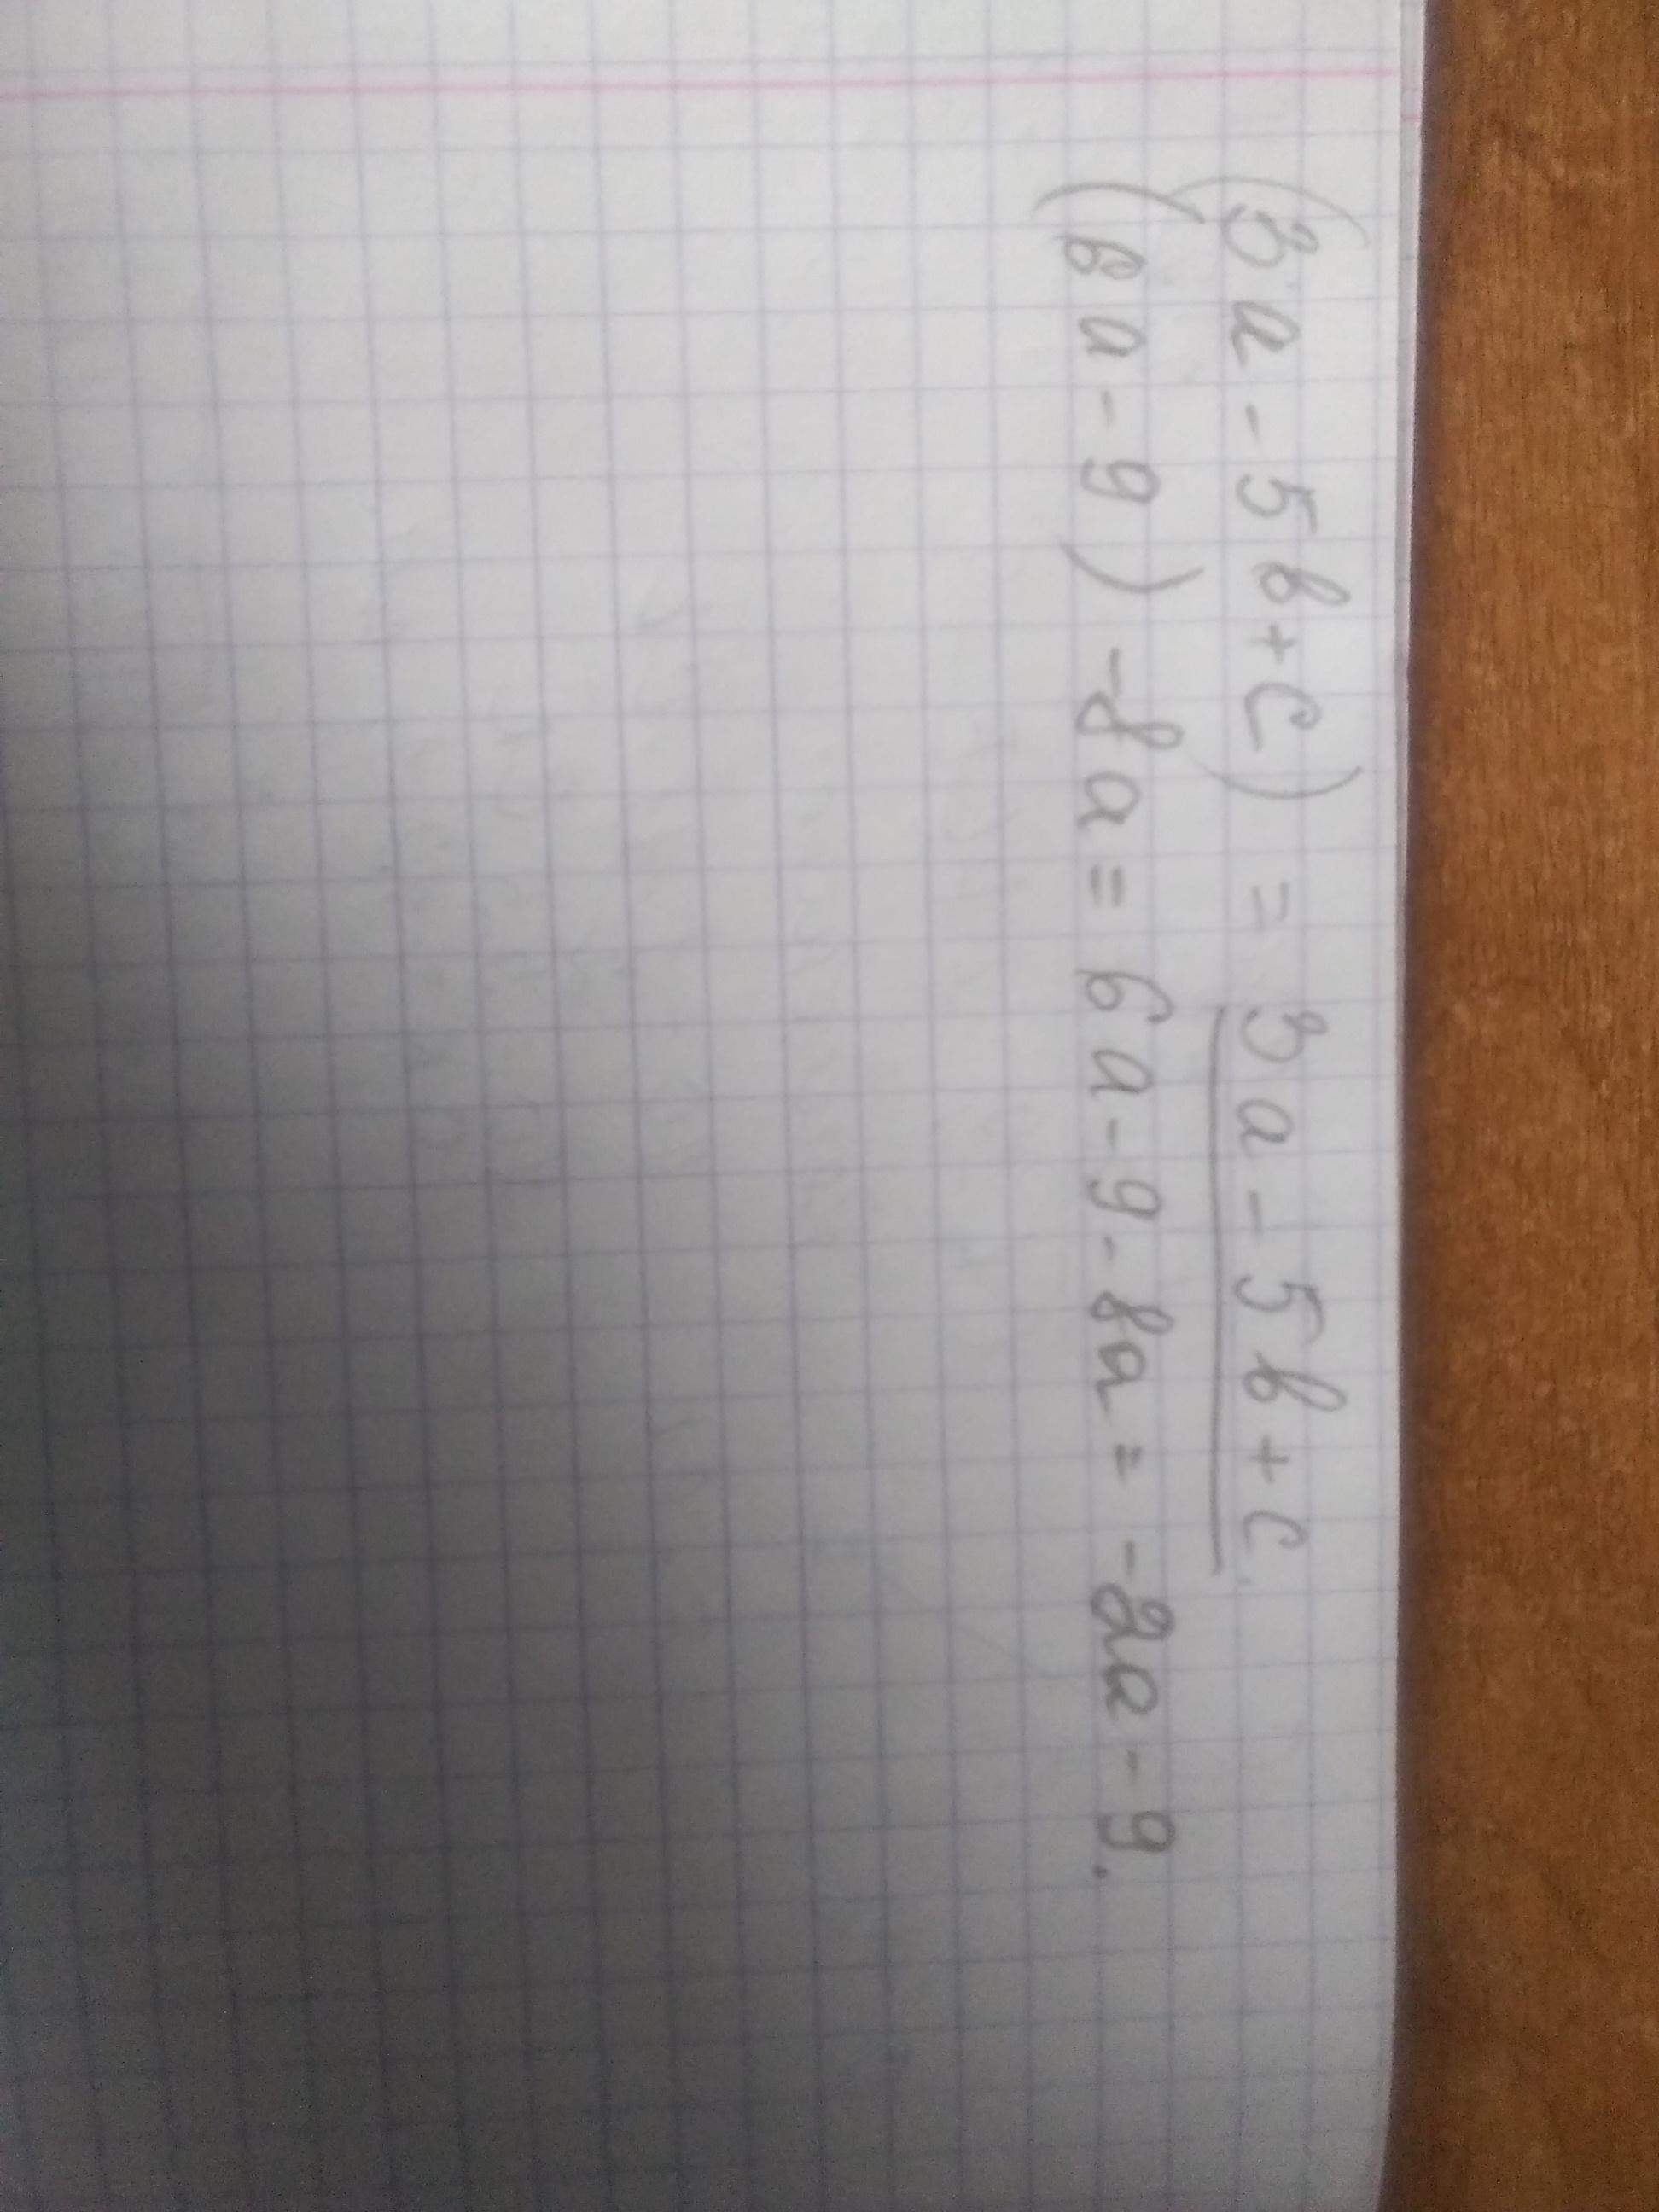 (3a - 5b + c) = 3a - 5b + c.
(6a - 9) - 8a = 6a - 9 - 8a = -2a - 9.